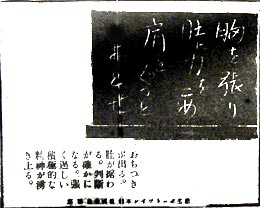 胸を張り
肚に力をこめ
肩をぐっと
おとせ
おちつき
が出る。
肚が据わ
る。判断
が確かに
なる。強
く逞しい
積極的な
精神が湧
き上る。